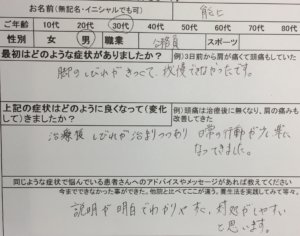 お名前(無記名・イニシャルでも可)
ご年齢 10代 20代 30代 40代 50代 60代
性別 女 男 職業 公務員 スポーツ
最初はどのような症状がありましたか? 例)3日前から肩が痛くて頭痛もしていた
脚のしびれがきつくて、我慢できなかったです。
上記の症状はどのように良くなって(変化 例)頭痛は治療後に無くなり、肩の痛みも
して)きましたか? 改善してきた
治療後しびれが治まりつつあり 日常の行動が楽に
なってきました。
同じような症状で悩んでいる患者さんへのアドバイスやメッセージがあれば教えてください
今までできなかった事ができた、他院と比べてここが違う、養生法を実践してみて等々。
説明が明白でわかりやすく、対処がしやすい
と思います。